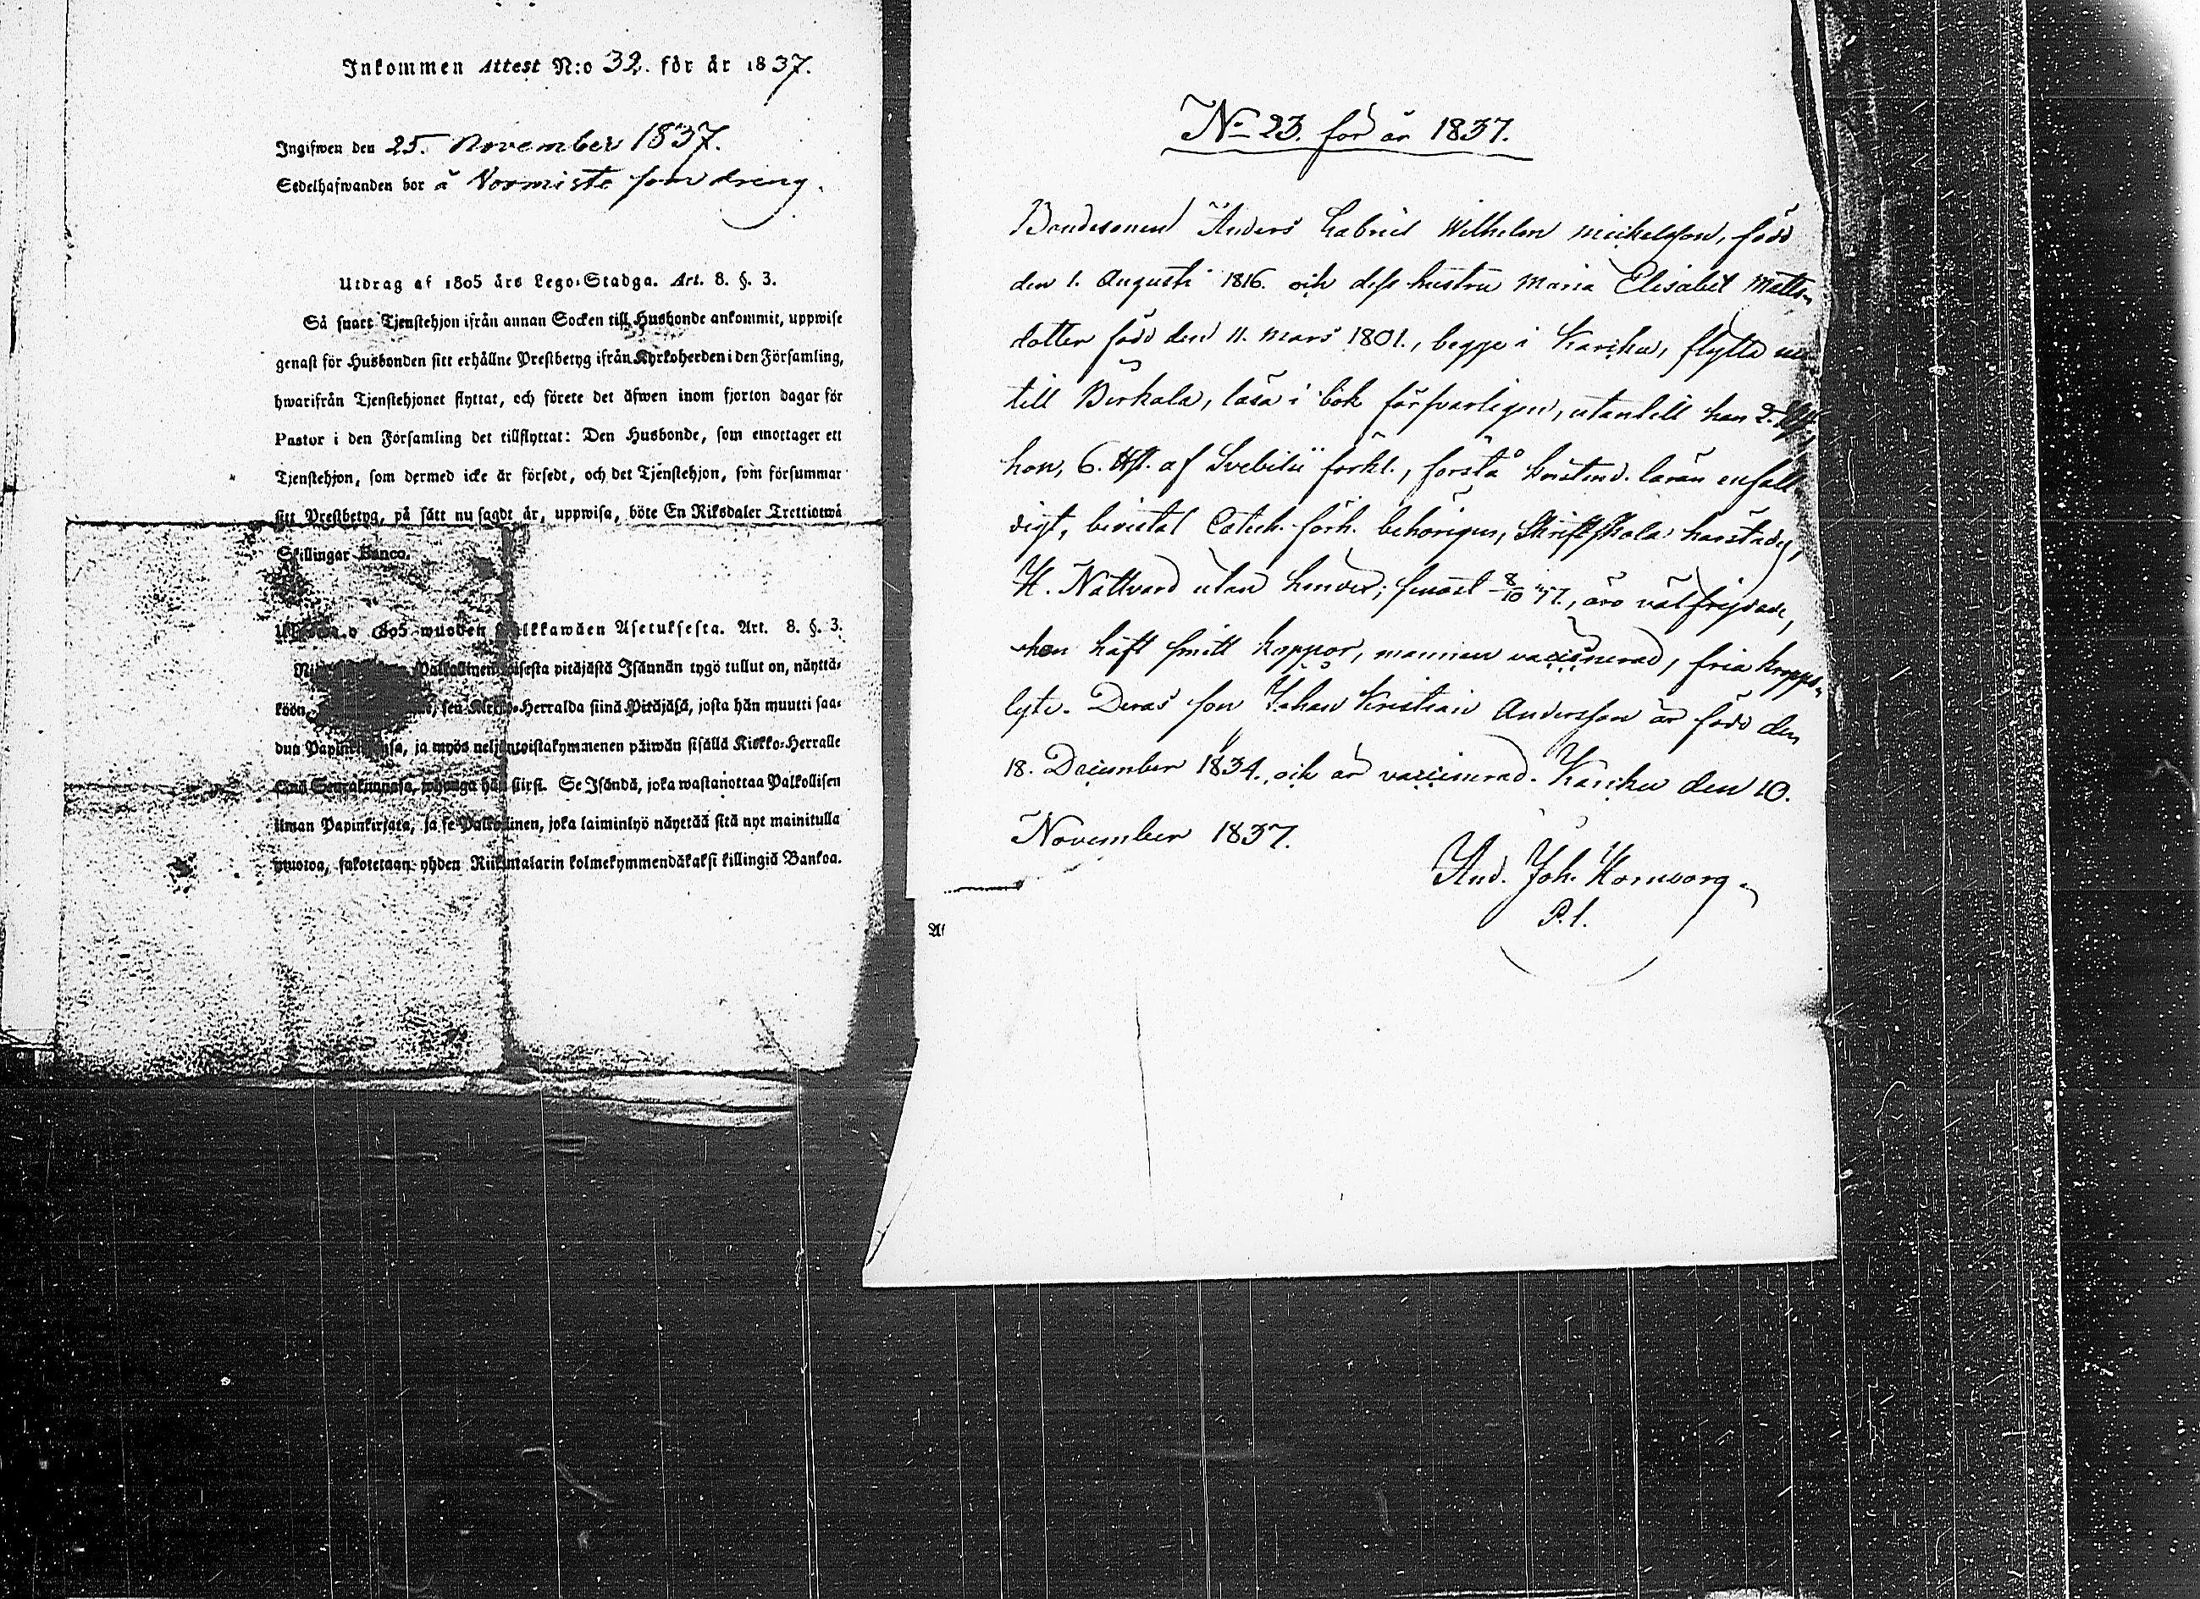 Inkommen Attest N:o 32. för år 1837.
Ingifwen den 25. November 1837.
Sedelhafwanden bor å Normista som dreng.
Utdrag af 1805 års Lego-Stadga. Art. 8. §. 3.
Så snart Tjenstehjon ifrån annan Socken till Husbonde ankommit, uppwise
genast för Husbonden sitt erhållne Prestbetyg ifrån Kyrkoherden i den Församling,
hwarifrån Tjenstehjonet flyttat, och förete det äfwen inom fjorton dagar för
Pastor i den Församling det tillflyttat: Den Husbonde, som emottager ett
Tjenstehjon, som dermed icke är försedt, och det Tjenstehjon, som försummar
sitt Prestbetyg, på sätt nu sagdt är, uppwisa, böte En Riksdaler Trettiotwå
Skillingar Banco.
1805 wuoden Palkkawäen Asetuksesta. Art. 8. §. 3.
Palkollinen toisesta pitäjästä Isännän tygö tullut on, näyttä-
köön sen Kirkko-Herralda siinä Pitäjäsä, josta hän muutti saa-
dun Papinkirjansa, ja myös neljäntoistakymmenen päiwän sisällä Kirkko-Herralle
siinä Seurakunnasa, johonga hän siirsi. Se Isändä, joka wastanottaa Palkollisen
ilman Papinkirjata, ja se Palkollinen, joka laiminlyö näyttää sitä nyt mainitulla
muotoa, sakotetaan yhden Riikintalarin kolmekymmendäkaksi killingiä Bankoa.
No 23. för år 1837.
Bondesonen Anders Gabriel Wilhelm Mickelsson, född
den 1. Augusti 1816. och dess hustru Maria Elisabet Matts-
dotter född den 11. Mars 1801., begge i Karkku, flytta nu
till Birkala, läsa i bok försvarligen, utantill han 2. Hst.
hon, 6. Hst. af Svebilii förkl., förstå kristend. läran enfall-
digt, bivistat Catech. förh. behörigen, Skriftskola härstädes,
H. Nattvard utan hinder; senast 8/10 37., äro välfrejdade,
hon haft smitt koppor, mannen vaccinerad, fria kropps-
lyte. Deras son Johan Kristian Andersson är född den
18. December 1834., och är vaccinerad. Karkku den 10.
November 1837.
And. Joh. Hornborg.
P. l.